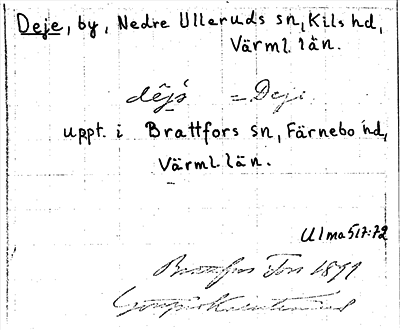 Deje, by, Nedre Ulleruds sn, Kils hd,
Värml. län.
= Deji
uppt. i Brattfors sn, Färnebo hd,
Värml. län.
Ulma 517:72
1891